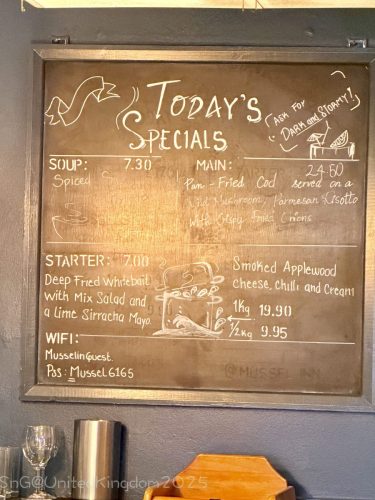 TODAY'S
SPECIALS
ASK FOR
DARK and STORMY!
SOUP: 7.30
Spiced
MAIN: 24.80
Pan-Fried Cod served on a
Wild Mushroom, Parmesan Risotto
with Crispy Fried Onions
STARTER: 7.00
Deep Fried Whitebait
with Mix Salad and
a lime Sirracha Mayo.
Smoked Applewood
cheese, chilli and Cream
1kg 19.90
1/2 kg 9.95
WIFI:
Musselinguest
Pas: Mussel6165
@MUSSEL INN
SnG@UnitedKingdom2025